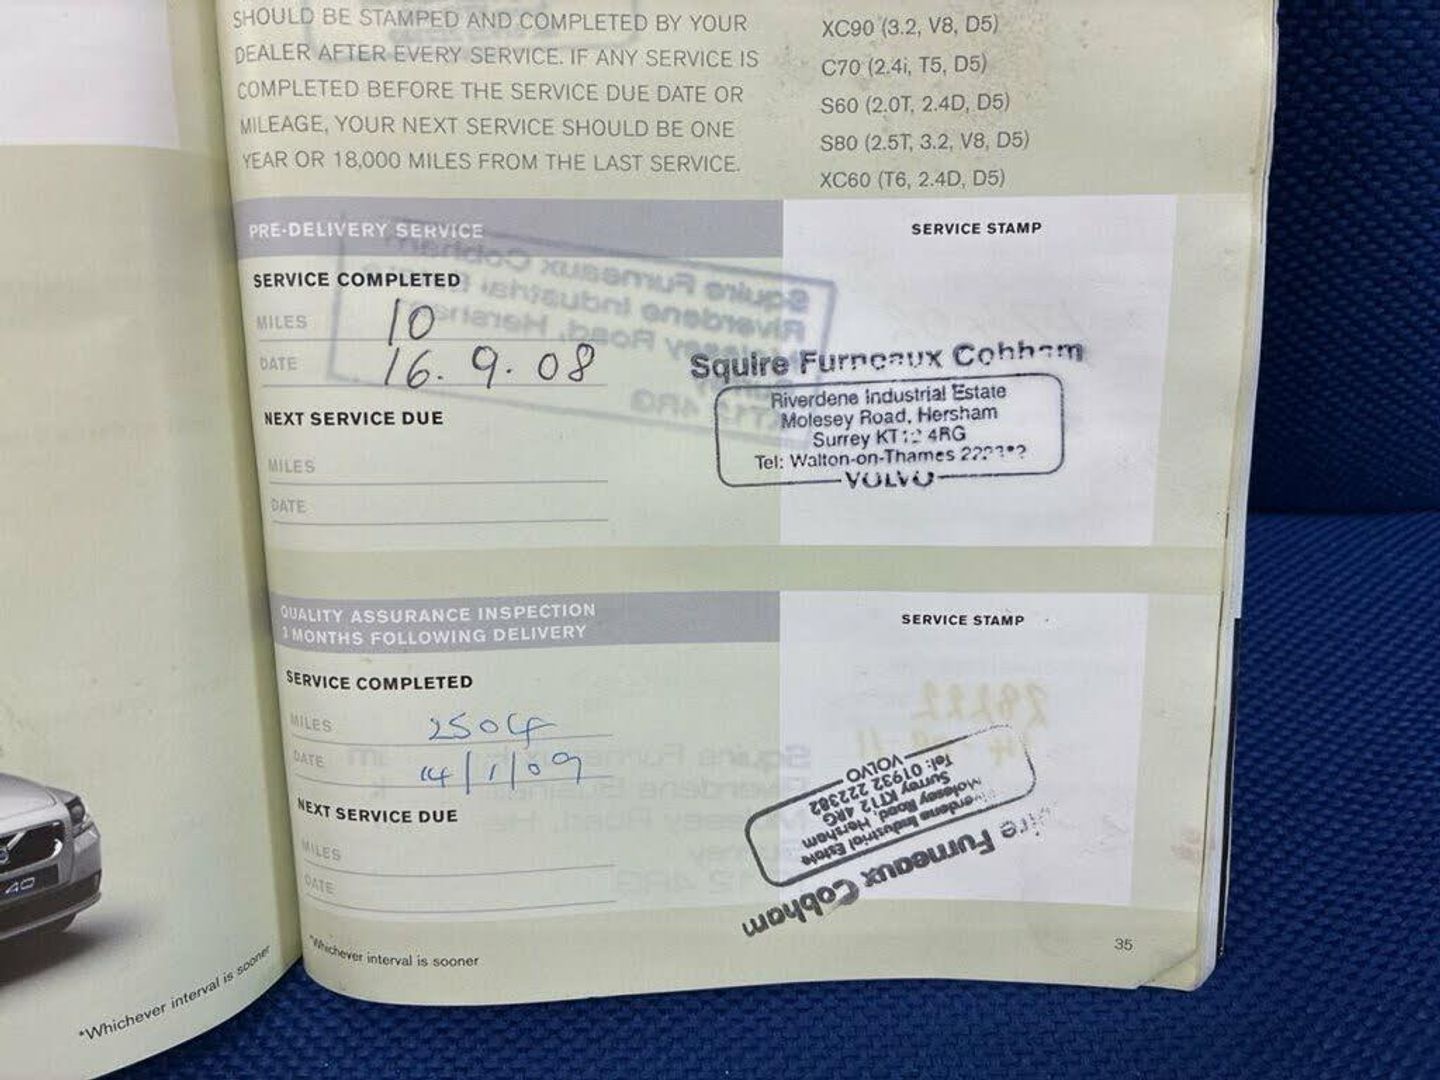 SHOULD BE STAMPED AND COMPLETED BY YOUR
DEALER AFTER EVERY SERVICE. IF ANY SERVICE IS
COMPLETED BEFORE THE SERVICE DUE DATE OR
MILEAGE, YOUR NEXT SERVICE SHOULD BE ONE
YEAR OR 18,000 MILES FROM THE LAST SERVICE.
XC90 (3.2, V8, D5)
C70 (2.4i, T5, D5)
S60 (2.0T, 2.4D, D5)
S80 (2.5T, 3.2, V8, D5)
XC60 (T6, 2.4D, D5)
PRE-DELIVERY SERVICE
SERVICE COMPLETED
MILES 10
DATE 16.9.08
NEXT SERVICE DUE
MILES
DATE
SERVICE STAMP
Squire Furneaux Cobham
Riverdene Industrial Estate
Molesey Road, Hersham
Surrey KT12 4RG
Tel: Walton-on-Thames
VOLVO
QUALITY ASSURANCE INSPECTION
3 MONTHS FOLLOWING DELIVERY
SERVICE COMPLETED
MILES 2504
DATE 14/1/09
NEXT SERVICE DUE
MILES
DATE
SERVICE STAMP
Furneaux Cobham
Industrial Estate
Molesey Road, Hersham
Surrey KT12 4RG
Tel: 01932 222382
VOLVO
*Whichever interval is sooner
35
40
*Whichever interval is sooner